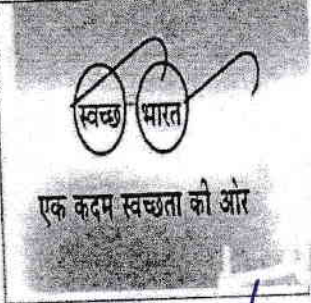 स्वच्छ भारत
एक कदम स्वच्छता की ओर